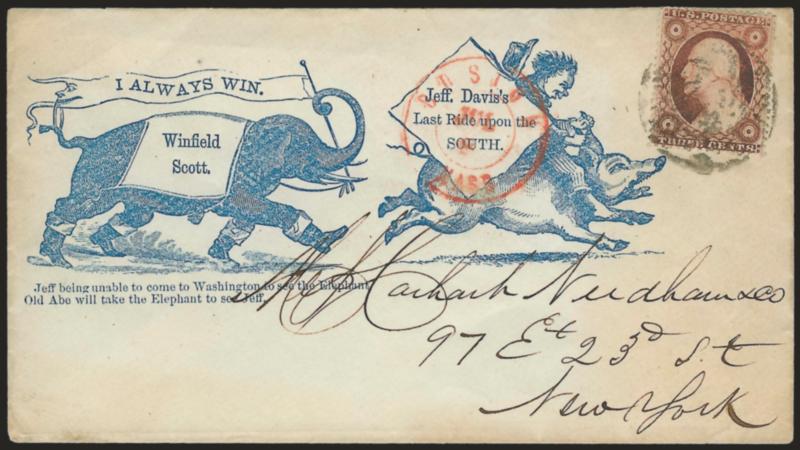 I ALWAYS WIN.
Winfield
Scott.
Jeff. Davis's
Last Ride upon the
SOUTH.
U.S. POSTAGE
THREE CENTS
BOSTON
MASS
Jeff being unable to come to Washington to see the Elephant
Old Abe will take the Elephant to see Jeff.
Carhart Needham & Co
97 Et 23d St
New York